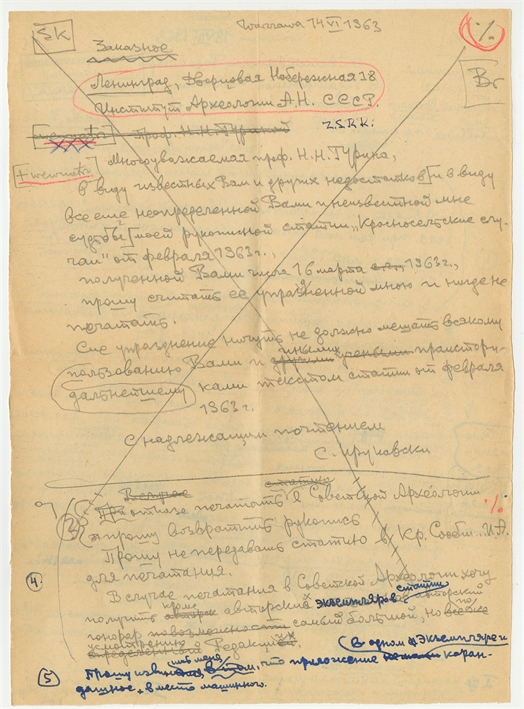 Warszawa 14 VI 1963
SK
%
Заказное
Ленинград, Дворцовая Набережная 18
Институт Археологии А.Н. СССР.
Br
Z.S.R.R.
Проф. Н.Н. Гуриной
+ wewnątrz
Многоуважаемая проф. Н.Н. Гурина,
в виду известных Вам и других недостатков и в виду
все еще неопределенной Вами и неизвестной мне
судьбы моей рукописной статьи „Красносельские слу-
чаи" от февраля 1963 г.,
полученной Вами числа 16 марта с.г., 1963 г.,
прошу считать её упразненной мною и нигде не
печатать.
Сие упразднение ничуть не должно мешать всякому
дальнейшему
пользованию Вами и другими учеными преистори-
иными
ками текстом статьи от февраля
1963 г.
С надлежащим почтением
С. Круковски
статьи
2) При отказе печатать в Советской Археологии
прошу возвратить рукопись %
Прошу не передавать статью в Кр. Сообщ. И.А.
для печатания.
4.
В случае печатания в Советской Археологии хочу
получить кроме авторских экземпляров статьи авторский
гонорар по возможности самый большой, но
усмотрению Редакции
5
Прошу извинить меня, что приложение в одном экземпляре и каран-
дашное, вместо машинного.